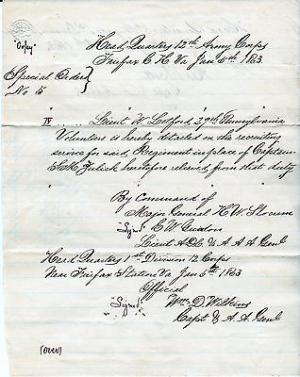 "Copy"
Head Quarters 12th Army Corps
Fairfax C. H. Va Jan 5th 1863.
Special Order
No 5
IV ... Lieut W. 29th Pennsylvania
Volunteers is hereby detailed on the recruiting
service for said Regiment in place of Captain
Zulick heretofore relieved from that duty
By command of
Major General H. W. Slocum
"Sgnd"
Lieut A.D.C. & A A A Genl
Head Quarters 1st Division 12 Corps
Near Fairfax Station Va Jan 5th 1863
Official
"Signed" Wm. D. Wilkins
Capt & A. A. Genl
(OVER)